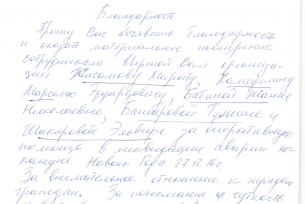 Благодарность
Прошу Вас объявить благодарность
и оказать материальное поощрение
сотрудникам вверенной Вам организа-
ции Хисамову Марату,
Марселю Эдуардовичу, Жанне
Николаевне, Гульсине и
Шакировой Эльвире за оперативную
помощь в ликвидации аварии на-
кануне Нового Года 27.12.16г.
За внимательное отношение к нуждам
граждан. За понимание и чуткость